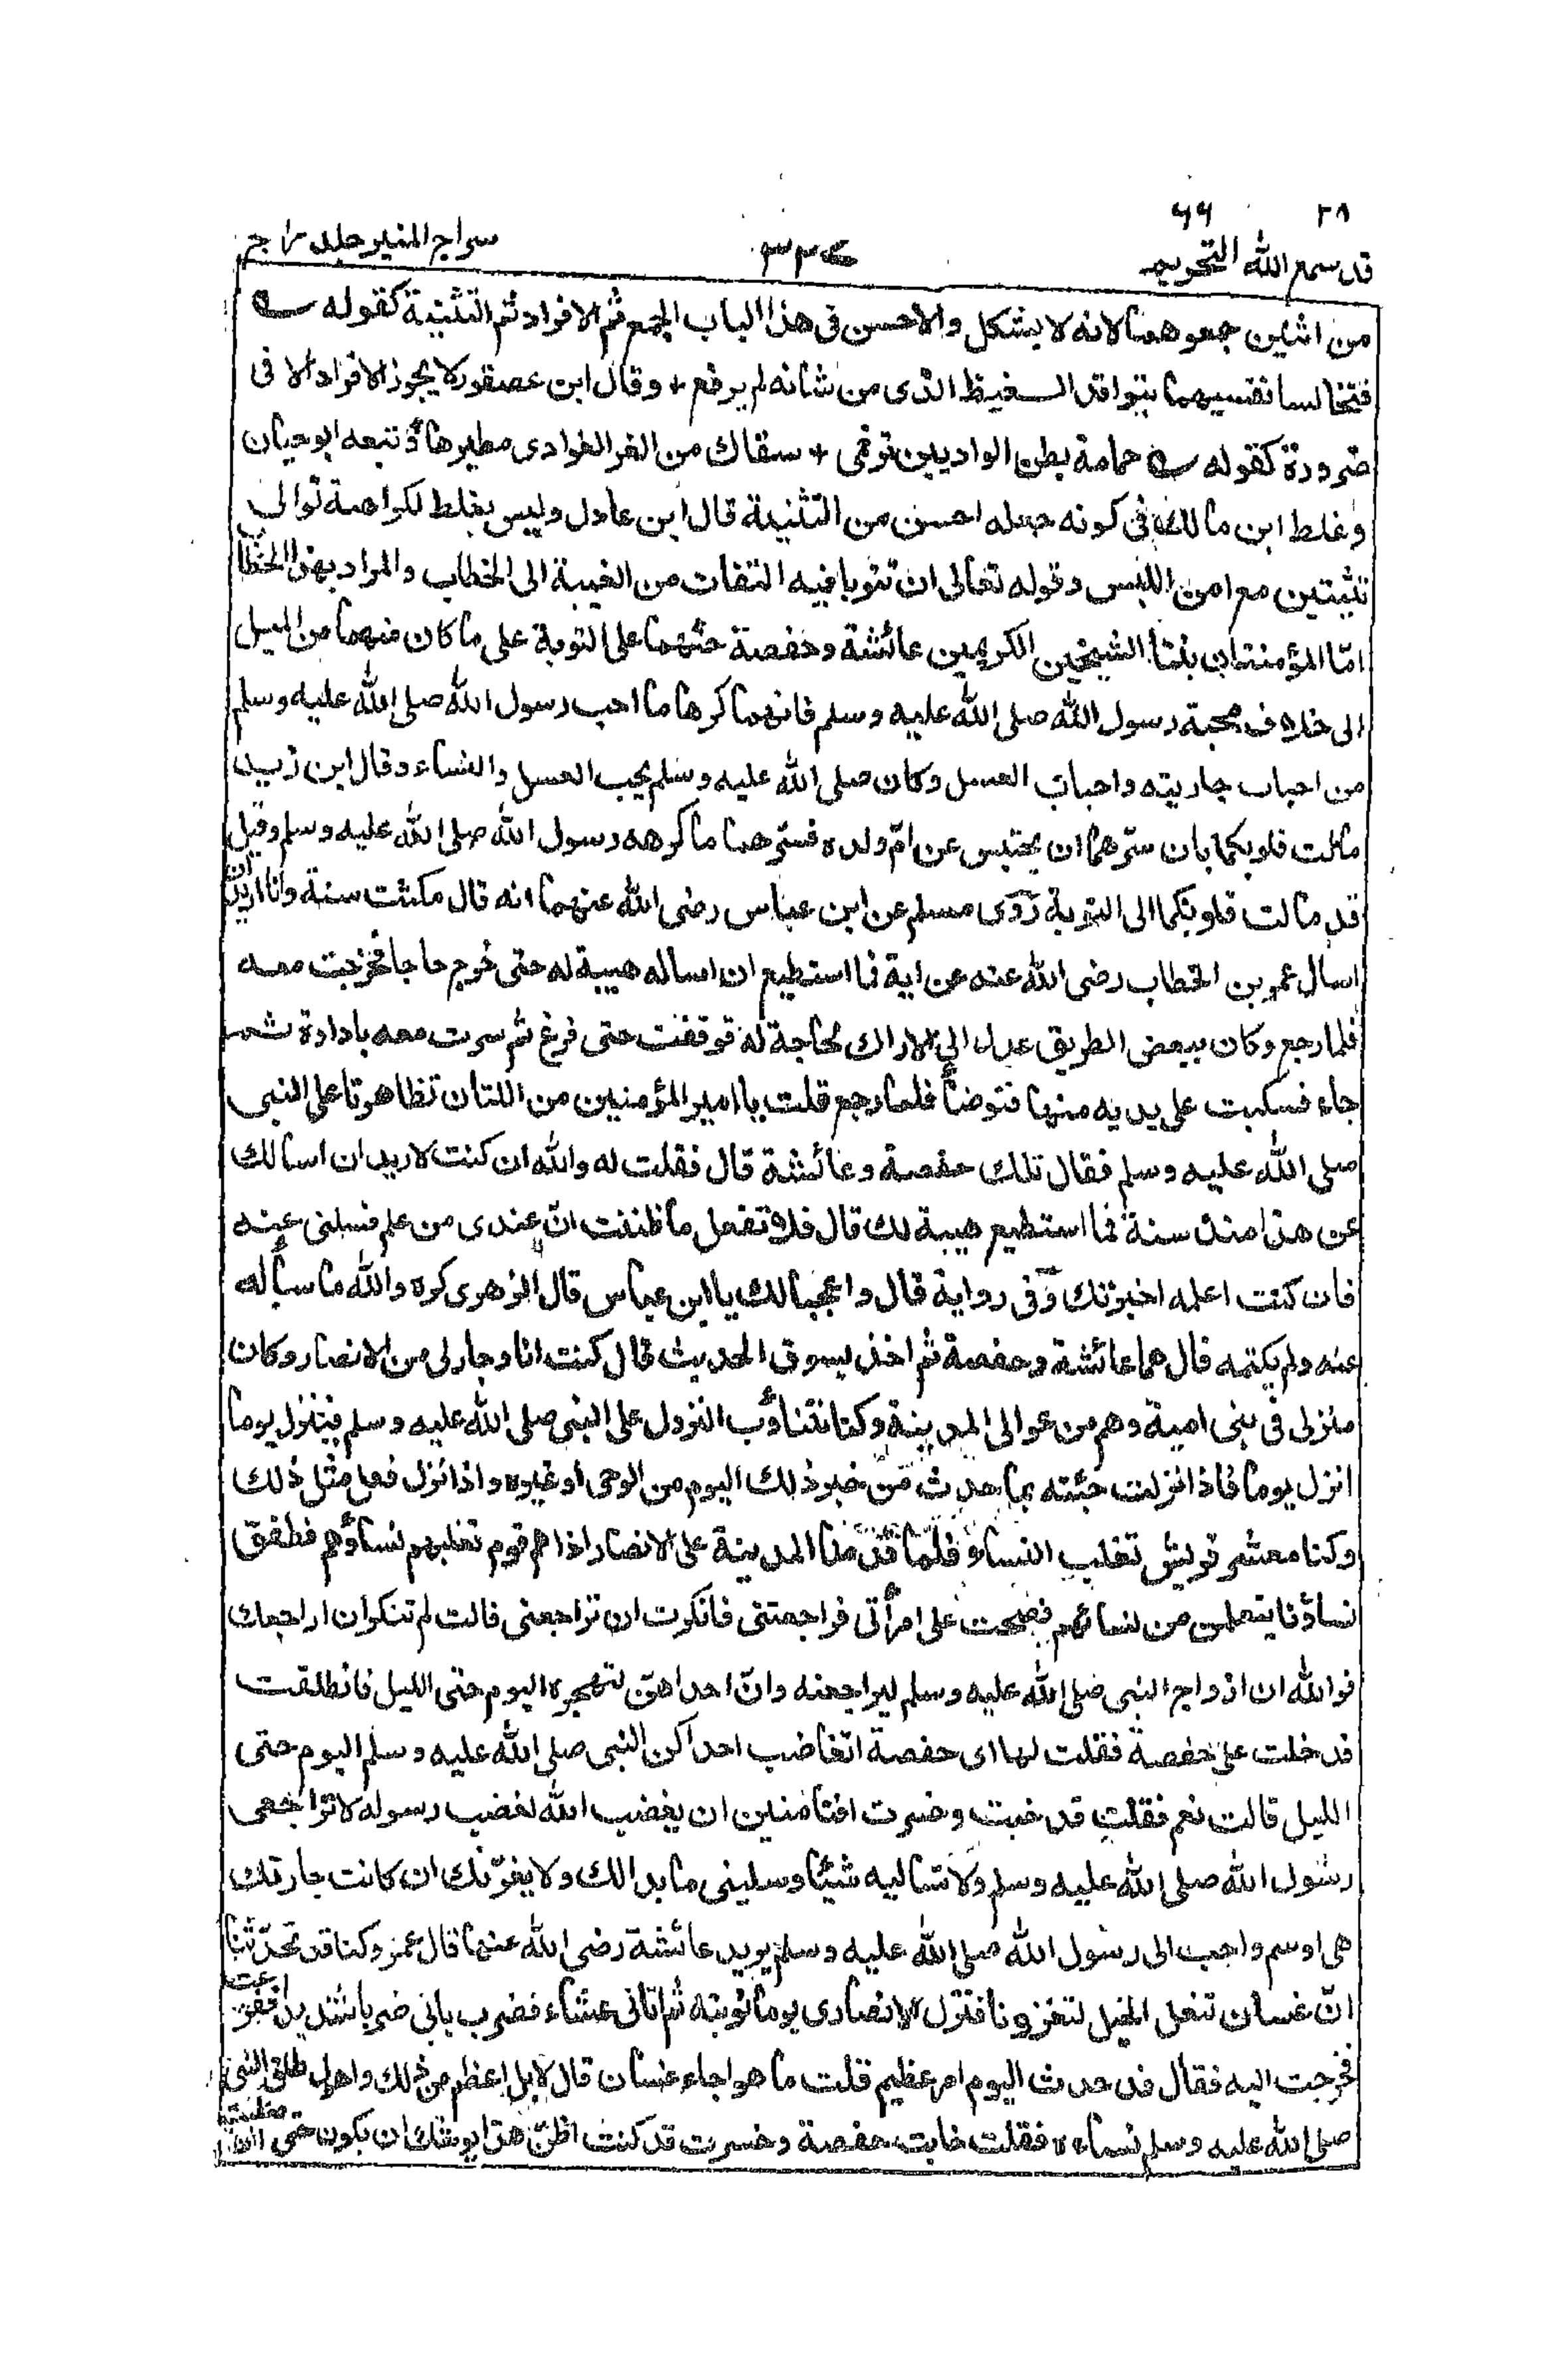 ٢٨ ٦٦
قد سمع الله التحريم ٣٣٤ سراج المنير جلد رابع
من اثنين جمعوهما لانه لا يشكل والاحسن فى هذا الباب الجمع ثم الافراد ثم التثنية كقوله
فتخالسا نفسيهما بنوافذ الغيظ الذى من شانه لم يرفع + وقال ابن عصفور لا يجوز الافراد الا فى
ضرورة كقوله حمامة بطن الواديين ترنمى + سقاك من الغر الغوادى مطيرها وتبعه ابو حيان
وغلط ابن مالك فى كونه جعله احسن من التثنية قال ابن عادل وليس بغلط لكراهة توالى
تثنيتين مع امن اللبس وقوله تعالى ان تتوبا فيه التفات من الغيبة الى الخطاب والمراد بهذا الخطاب
امّا المؤمنتان بنتا الشيخين الكريمين عائشة وحفصة حثهما على التوبة على ما كان منهما من الميل
الى خلاف محبة رسول الله صلى الله عليه وسلم فانهما كرها ما احب رسول الله صلى الله عليه وسلم
من احباب جاريته واحباب العسل وكان صلى الله عليه وسلم يحب العسل والنساء وقال ابن زيد
مالت قلوبكما بان سرّهما ان يحتبس عن امّ ولده فسرّهما ما كرهه رسول الله صلى الله عليه وسلم وقيل
قد مالت قلوبكما الى التوبة روى مسلم عن ابن عباس رضى الله عنهما انه قال مكثت سنة وانا اريد ان
اسال عمر بن الخطاب رضى الله عنه عن اية فما استطيع ان اساله هيبة له حتى خرج حاجا فخرجت معه
فلما رجع وكان ببعض الطريق عدل الى الاراك لحاجة له فوقفت حتى فرغ ثم سرت معه باداوة ثم
جاء فسكبت على يديه منها فتوضأ فلما رجع قلت يا امير المؤمنين من اللتان تظاهرتا على النبى
صلى الله عليه وسلم فقال تلك حفصة وعائشة قال فقلت له والله ان كنت لاريد ان اسالك
عن هذا منذ سنة فما استطيع هيبة لك قال فلا تفعل ما ظننت انّ عندى من علم فسلنى عنه
فان كنت اعلمه اخبرتك وفى رواية قال واعجبا لك يا ابن عباس قال الزهرى كره والله ما سأله
عنه ولم يكتمه قال هما عائشة وحفصة ثم اخذ يسوق الحديث قال كنت انا وجار لى من الانصار وكان
منزلى فى بنى امية وهم من عوالى المدينة وكنا نتناوب النزول على النبى صلى الله عليه وسلم فينزل يوما
انزل يوما فاذا نزلت جئته بما حدث من خبر ذلك اليوم من الوحى او غيره واذا نزل فعل مثل ذلك
وكنا معشر قريش نغلب النساء فلما قدمنا المدينة على الانصار اذا هم قوم تغلبهم نساؤهم فطفق
نساؤنا يتعلمن من نسائهم فصحت على امرأتى فراجعتنى فانكرت ان تراجعنى قالت لم تنكر ان اراجعك
فوالله ان ازواج النبى صلى الله عليه وسلم ليراجعنه وانّ احداهن لتهجره اليوم حتى الليل فانطلقت
فدخلت على حفصة فقلت لها اى حفصة اتغاضب احداكن النبى صلى الله عليه وسلم اليوم حتى
الليل قالت نعم فقلت قد خبت وخسرت افتامنين ان يغضب الله لغضب رسوله لا تراجعى
رسول الله صلى الله عليه وسلم ولا تساليه شيئا وسلينى ما بدا لك ولا يغرّنك ان كانت جارتك
هى اوسم واحب الى رسول الله صلى الله عليه وسلم يريد عائشة رضى الله عنها قال عمر وكنا قد تحدّثنا
انّ غسان تنعل الخيل لتغزونا فنزل الانصارى يوم نوبته ثم اتانى عشاء فضرب بابى ضربا شديدا ففزعت
فخرجت اليه فقال قد حدث اليوم امر عظيم قلت ما هو اجاء غسان قال لا بل اعظم من ذلك واهول طلق النبى
صلى الله عليه وسلم نساءه فقلت خابت حفصة وخسرت قد كنت اظنّ هذا يوشك ان يكون حتى